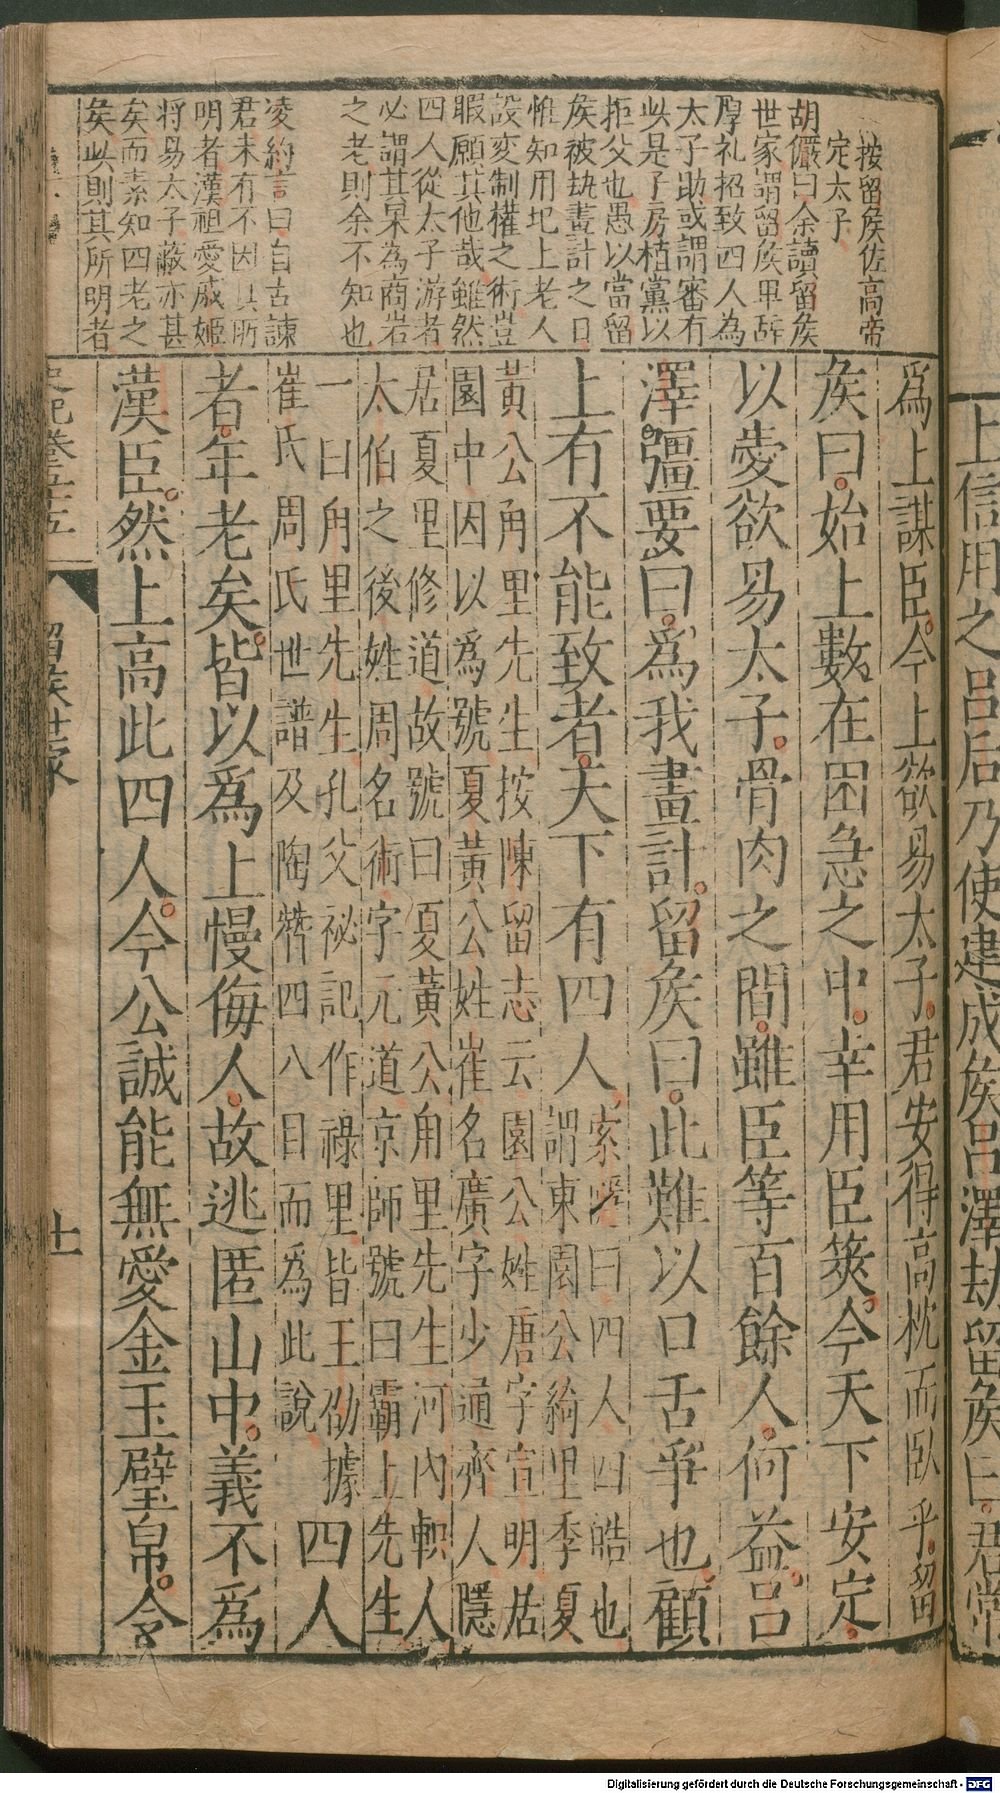 上信用之呂后乃使建成矦呂澤劫留矦曰君常
按留矦佐高帝
定太子
胡儼曰余讀留矦
世家謂留矦卑辭
厚礼招致四人為
太子助或謂審有
此是子房植黨以
拒父也愚以當留
矦被劫畫計之口
惟知用圯上老人
設変制權之術豈
暇願其他哉雖然
四人從太子游者
必謂其果為商岩
之老則余不知也
凌約言曰自古諫
君未有不因其所
明者漢祖愛戚姬
将易太子蔽亦甚
矣而素知四老之
矣此則其所明者
爲上謀臣今上欲易太子君安得高枕而臥乎留
矦曰始上數在困急之中幸用臣筴今天下安定
以愛欲易太子骨肉之間雖臣等百餘人何益呂
澤彊要曰爲我畫計留矦曰此難以口舌爭也顧
上有不能致者天下有四人索隱曰四人四皓也
謂東園公綺里季夏
黃公角里先生按陳留志云園公姓唐字宣明居
園中因以爲號夏黃公姓崔名廣字少通齊人隱
居夏里修道故號曰夏黃公角里先生河內軹人
太伯之後姓周名術字元道京師號曰霸上先生
一曰角里先生孔父祕記作祿里皆王劭據
崔氏周氏世譜及陶潛四八目而為此說
四人
者年老矣皆以爲上慢侮人故逃匿山中義不爲
漢臣然上高此四人今公誠能無愛金玉璧帛令
史記卷五十五
留矦世家
十一
Digitalisierung gefördert durch die Deutsche Forschungsgemeinschaft - DFG